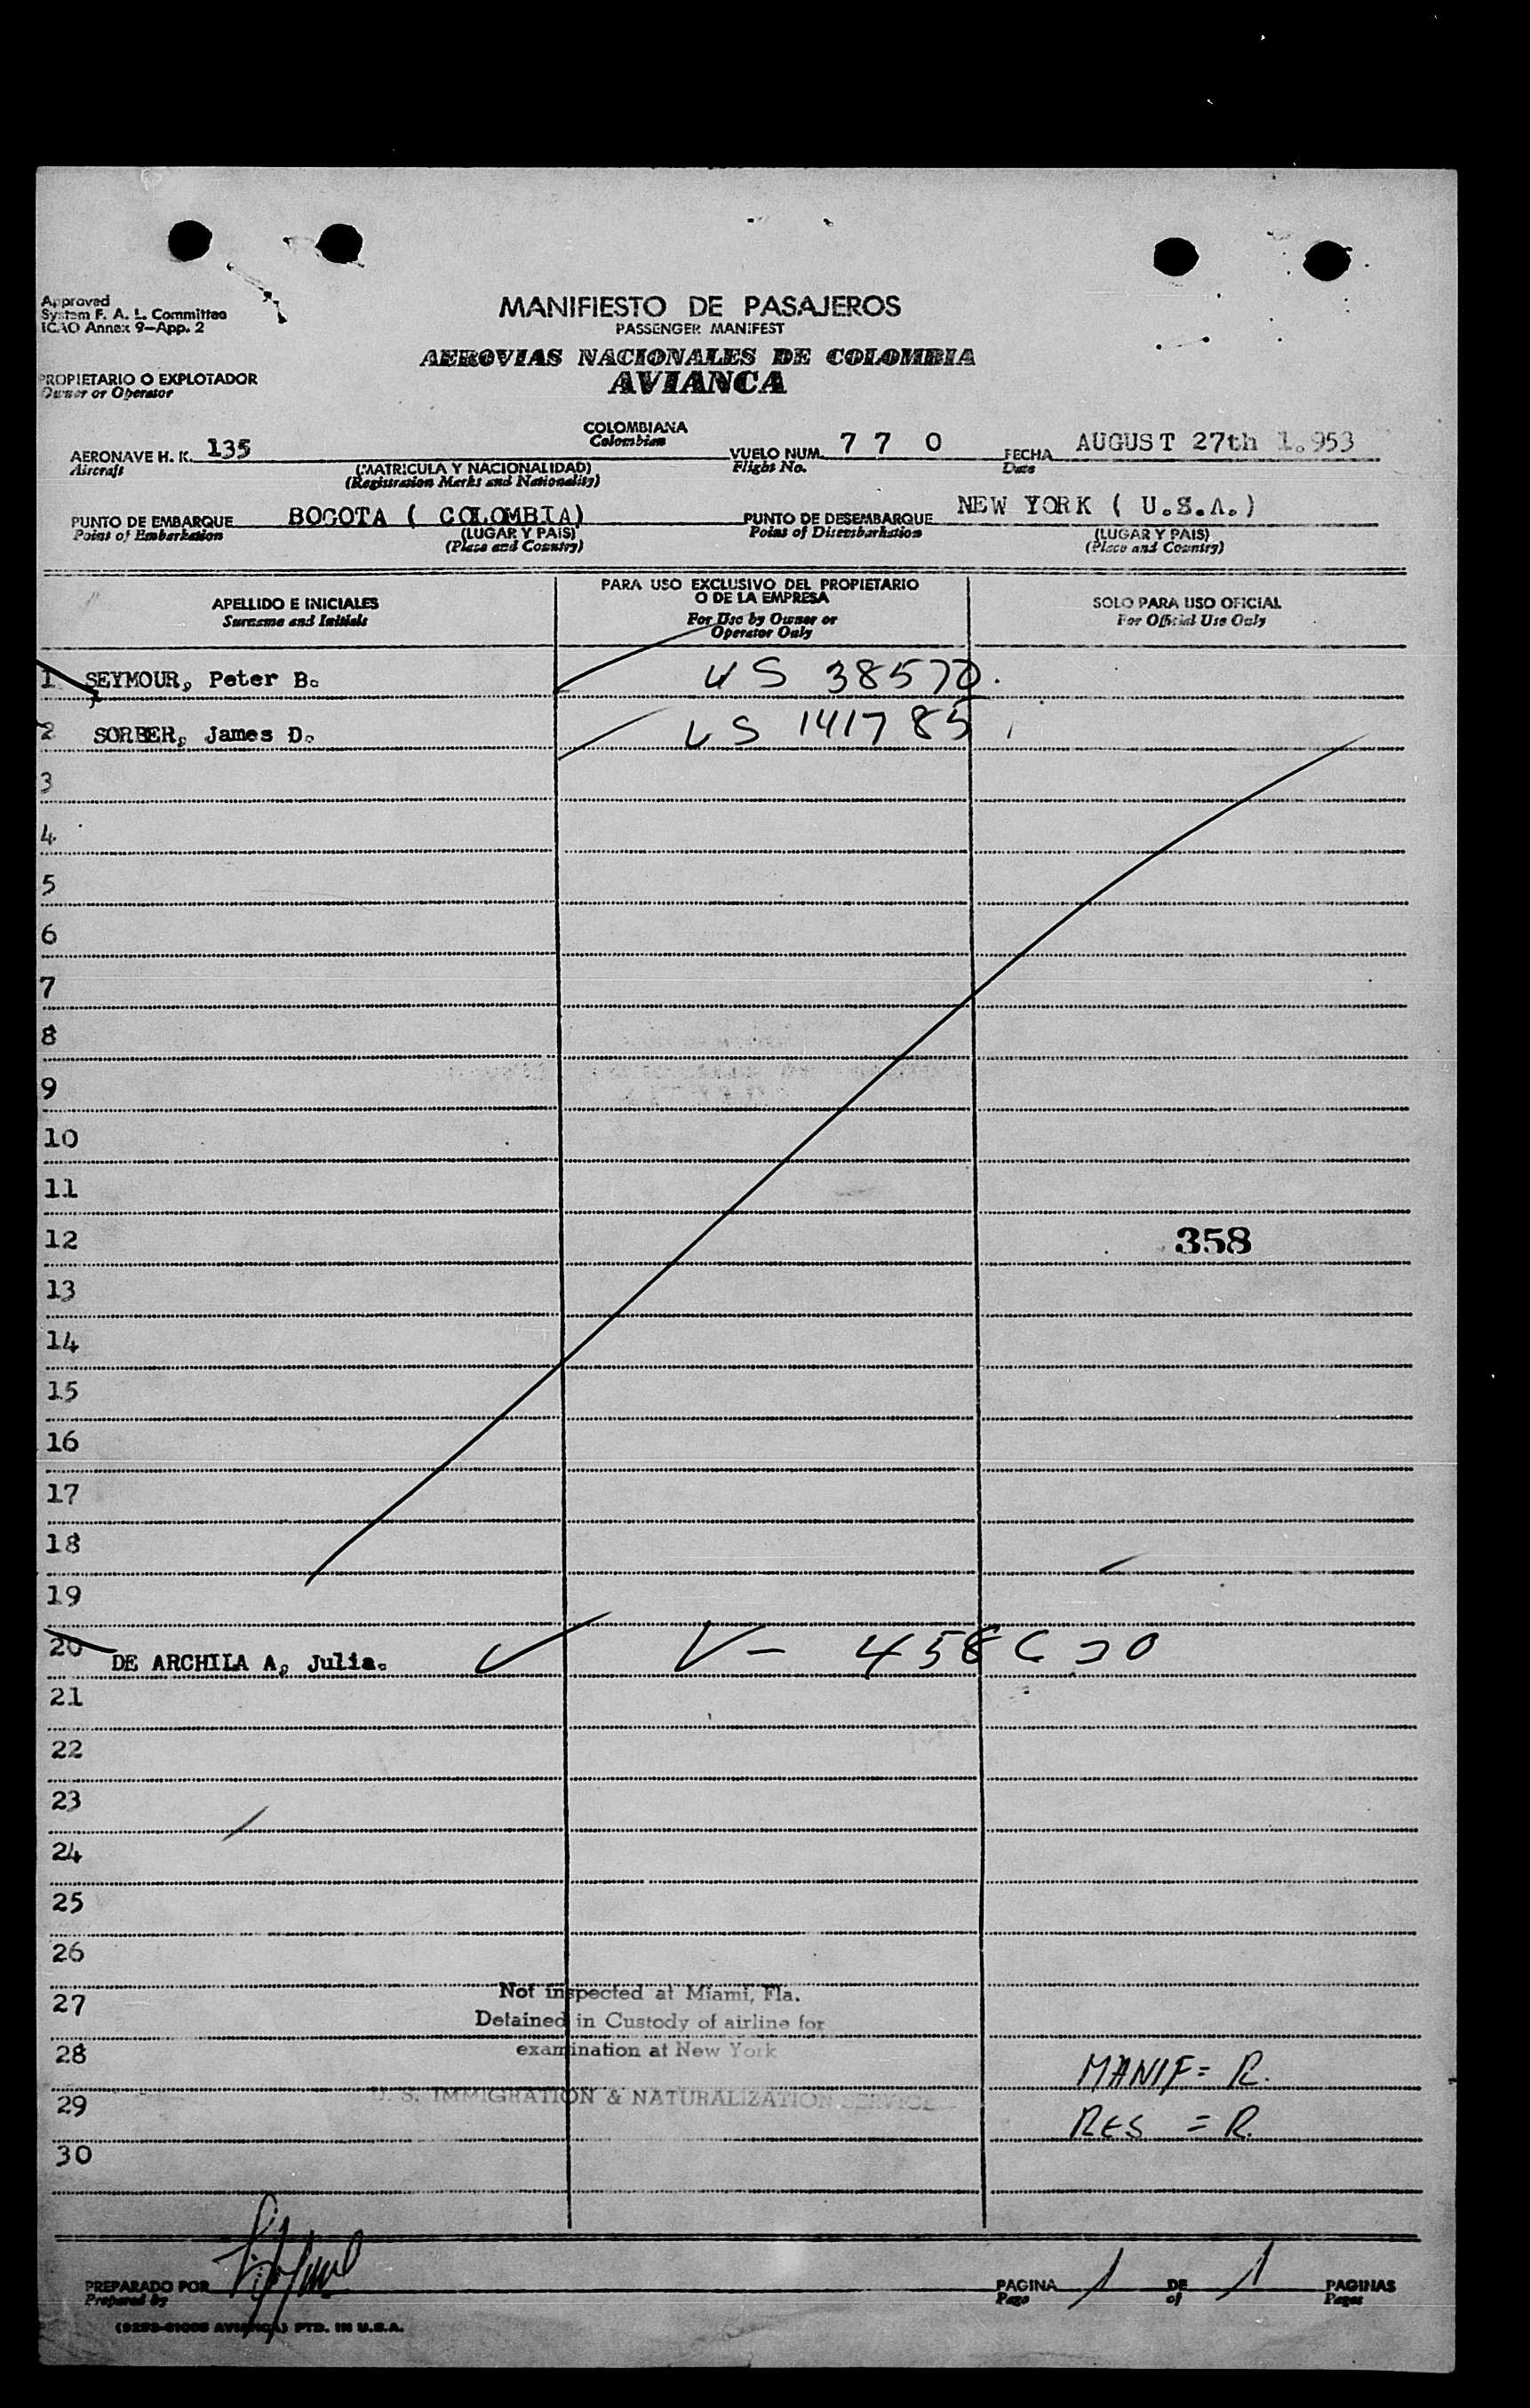 Approved
System F. A. L. Committee
ICAO Annex 9—App. 2
MANIFIESTO DE PASAJEROS
PASSENGER MANIFEST
AEROVIAS NACIONALES DE COLOMBIA
AVIANCA
PROPIETARIO O EXPLOTADOR
Owner or Operator
COLOMBIANA
Colombian
AERONAVE H. K. 135
Aircraft
(MATRICULA Y NACIONALIDAD)
(Registration Marks and Nationality)
VUELO NUM. 7 7 0
Flight No.
FECHA AUGUST 27th 1.953
Date
PUNTO DE EMBARQUE BOGOTA ( COLOMBIA)
Point of Embarkation
(LUGAR Y PAIS)
(Place and Country)
PUNTO DE DESEMBARQUE NEW YORK ( U.S.A.)
Point of Disembarkation
(LUGAR Y PAIS)
(Place and Country)
APELLIDO E INICIALES
Surname and Initials
PARA USO EXCLUSIVO DEL PROPIETARIO
O DE LA EMPRESA
For Use by Owner or
Operator Only
SOLO PARA USO OFICIAL
For Official Use Only
1 SEYMOUR, Peter B. US 38570.
2 SORBER, James D. US 141785
3
4
5
6
7
8
9
10
11
12 358
13
14
15
16
17
18
19
20 DE ARCHILA A, Julia. V-
21
22
23
24
25
26
27 Not inspected at Miami, Fla.
Detained in Custody of airline for
28 examination at New York
MANIF = R.
29 U. S. IMMIGRATION & NATURALIZATION SERVICE
RES = R.
30
PREPARADO POR
Prepared by
PAGINA 1 DE 1 PAGINAS
Page of Pages
AVIANCA) PTD. IN U.S.A.